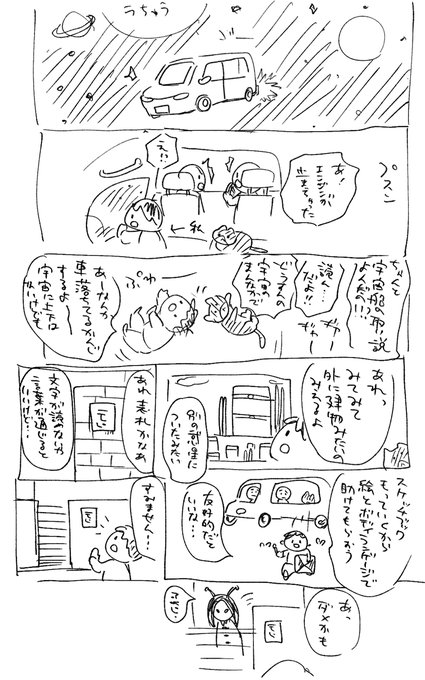 うちゅう
プスン
あ！
エンジンが
止まっちゃった
え！？
←私
ちゃんと
宇宙船の取り説
よんだの！？
読ん…
だよ！！
ギャー
ギャー
どうすんの
宇宙の
まんなかで
ぷわ
あーなんか
車落ちてるかんじ
するよー
宇宙に上下は
ないけども
あれっ
みてみて
外に建物みたいの
みえるよ
別の惑星に
ついたみたい
あれ表札かなあ
文字が読めないや
言葉が通じると
いいけど…
スケッチブック
もっていくから
絵とボディランゲージで
助けてもらおう
友好的だと
いいな…
すみませんー…
あっ
ダメかも